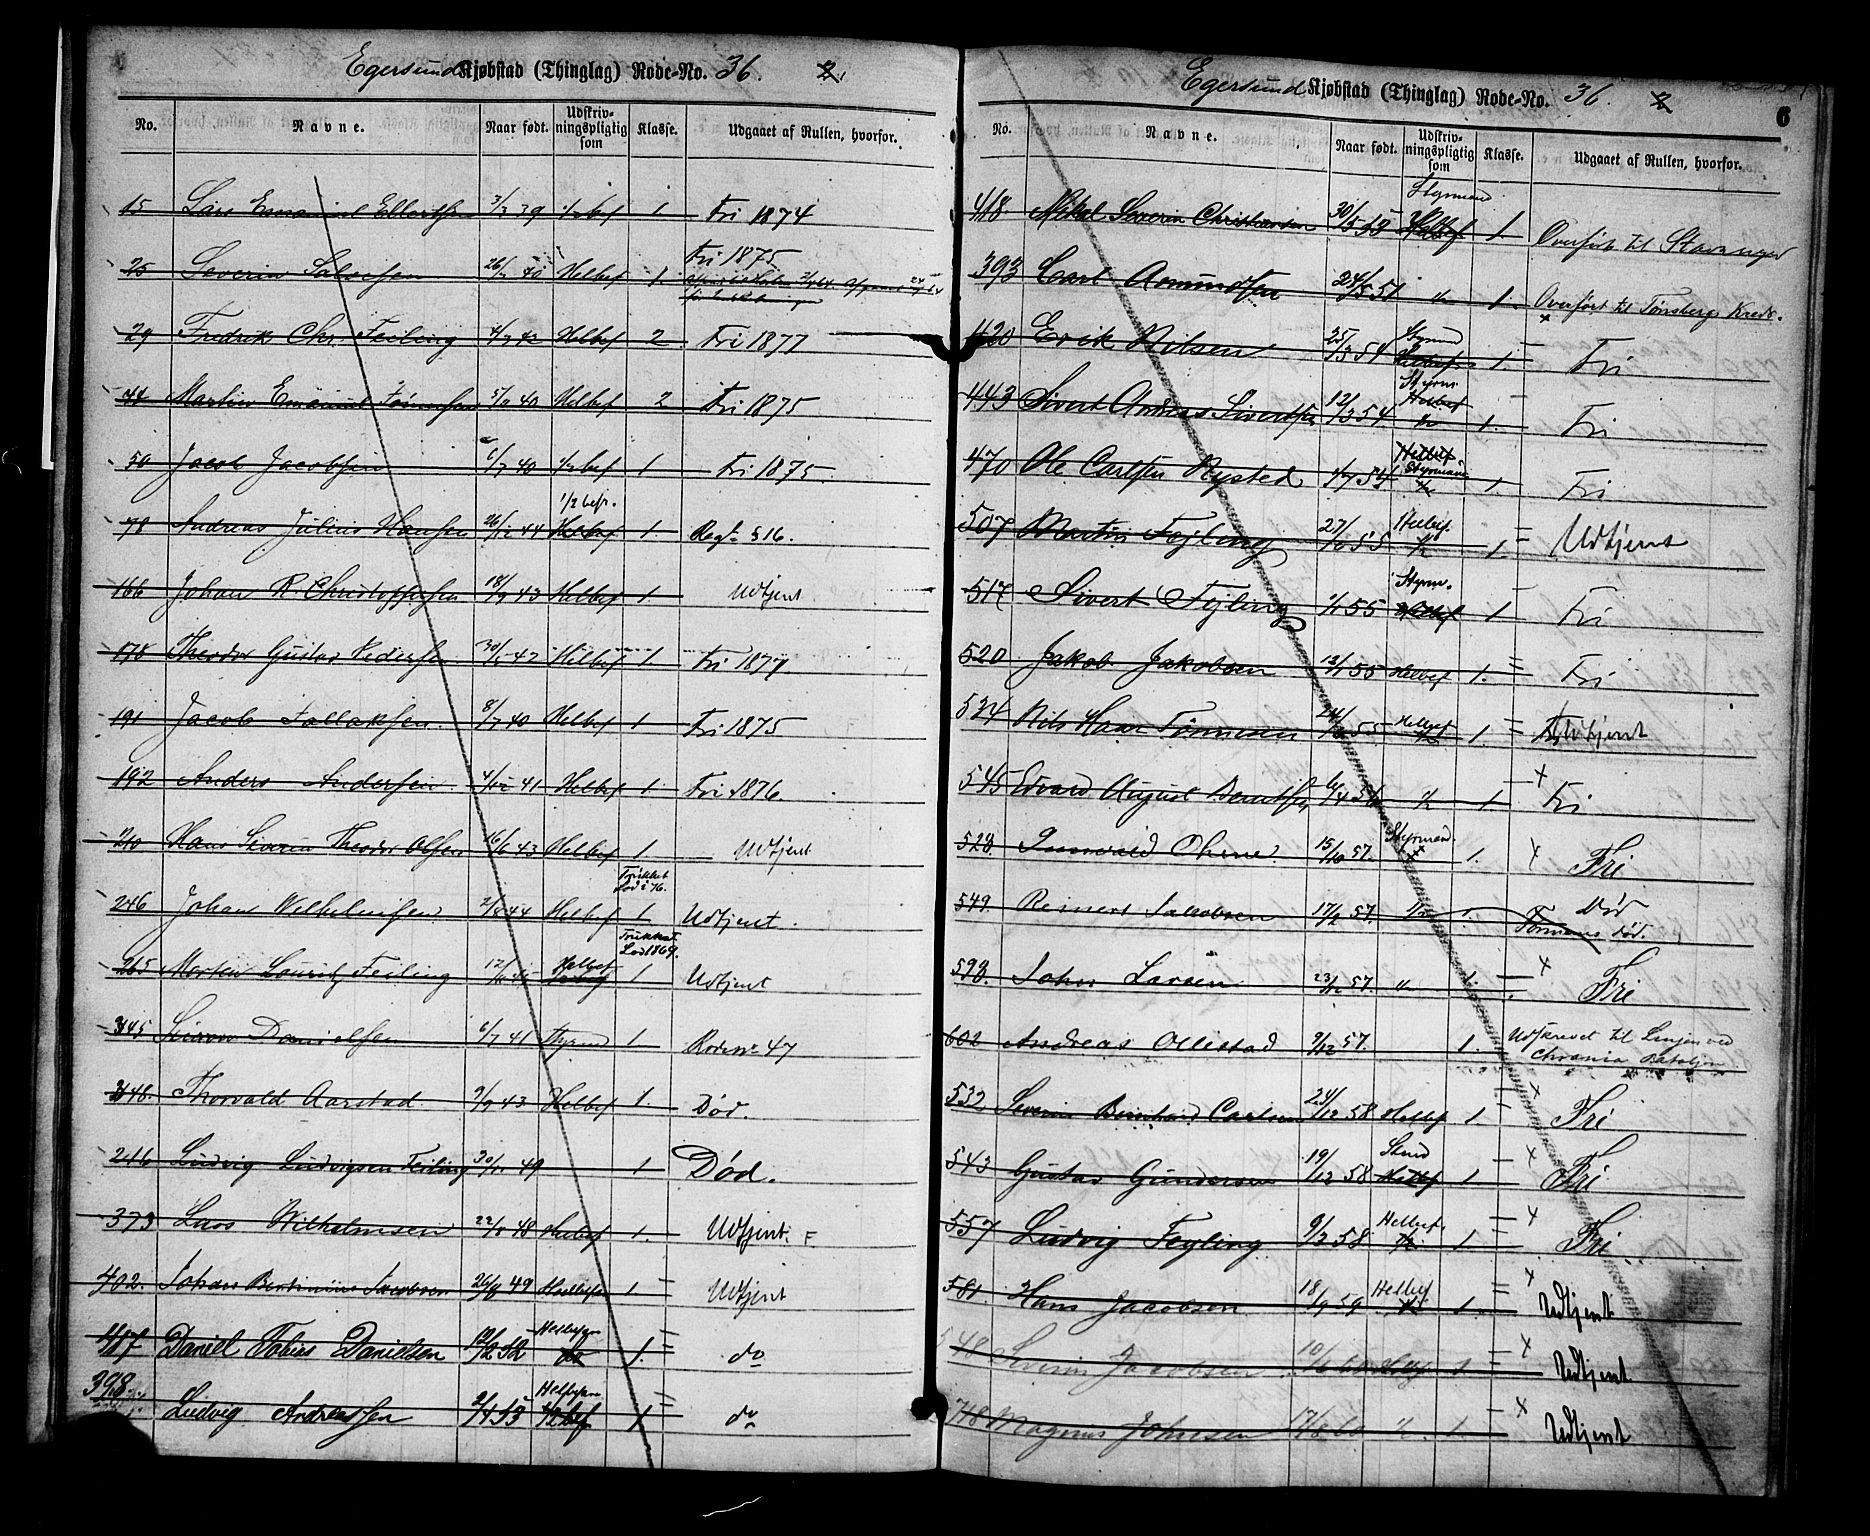 Egersund Kjøbstad (Thinglag) Rode-No. 36. 2.
No. Navne. Naar født. Udskriv-ningspligtig som Klasse. Udgaaet af Rullen, hvorfor.
15 Lars Emanuel 3/3 39 1/2 bef 1 Fri 1874
25 Severin Salvesen 26/ 40 Helbef 1. Fri 1875
29 Fredrik Chr. Feiling 4/9 42 Helbef 2 Fri 1877
44 Martin Emanuel 5/ 40 Helbef 2 Fri 1875
50 Jacob Jacobsen 6/7 40 1/2 bef 1 Fri 1875
78 Andreas Julius Hansen 26/12 44 1/2 befr. Helbef 1. Regt. 516.
166 Johan R. Christoffersen 18/9 43 Helbef 1. Udtjent
178 Theodor Gustav Pedersen 30/5 42 Helbef 1 Fri 1877.
191 Jacob Tollaksen 8/7 40 Helbef 1 Fri 1875
192 Anders Andersen 4/12 41 Helbef 1. Fri 1876.
210 Hans Severin Theodor Olsen 16/6 43 Helbef 1. Udtjent
Trukket Lod i 76.
246 Johan Wilhelmsen 2/8 44 Helbef 1 Udtjent.
Trukket Lod 1869.
265 Morten Lauritz Feiling 12/ 45 Helbef 1 Udtjent
345 Danielsen 6/7 41 Styrmd 1. Rode no 47
348. Thorvald Aarstad 9/9 43 Helbef 1. Død.
246 Ludvig Ludvigsen Feiling 30/11 49 1 Død.
373 Lars Wilhelmsen 22/8 48 Helbef 1. Udtjent. F
402. Johan Bertinius Jacobsen 26/8 49 Helbefar 1. Udtjent
417 Daniel Tobias Danielsen 19/2 52 Helbefar do 1. do
398 Ludvig Andreassen 2/4 53 Helbefar 1/2 bef 1 do
Egersund Kjøbstad (Thinglag) Rode-No. 36. 2 6
No. Navne. Naar født. Udskriv-ningspligtig som Klasse. Udgaaet af Rullen, hvorfor.
418 Mikal Severin Christiansen 30/5 53 Styrmand Helbef 1. Overført til Stavanger
393 Carl Amundsen 24/8 51 " 1. Overført til Tønsbergs Kreds.
420 Erik Nilsen 25/3 54 Styrmd Helbef 1. Fri
443 Sivert Andreas Sivertsen 12/3 54 Styrm. Helbef 1. Fri
470 Ole Carlsen Nysted 4/7 54 Helbef Styrmand 1. Fri
507 Martin Fejling 27/10 55 Helbef. 1/2 1. Udtjent
517 Sivert Fejling 1/1 55 Styrm. Helbef 1 Fri
520 Jakob Jakobsen 12/1 55 Helbef 1. Fri
534 Nils Haar Tønnesen 24/ 55 Helbef 1/2 1. Udtjent
545 Edvard August 6/4 56 " 1 Fri
528. 15/10 57. Styrmand 1. Fri
549. Reinert Jakobsen 17/2 57. 1/2 1. Død
død.
593. Johan Larsen 23/12 57. " 1. Fri
602 Andreas Ollestad 9/12 57. 1. Udskrevet til Linjen ved
Chrania Bataljon
532 Severin Bernhard Carlsen 24/12 58 Helbef 1. Fri
543 Gustav Gundersen 19/12 58 Stmd Helbef 1 Fri
557 Ludvig Feyling 9/3 58 Helbef. 1/2 1. Fri
581. Hans Jacobsen 18/9 59 Helbef 1. Udtjent
548 Severin Jacobsen 10/ 60 Helbef 1 Udtjent
748 Magnus Johnsen 17/8 60 " 1 Udtjent